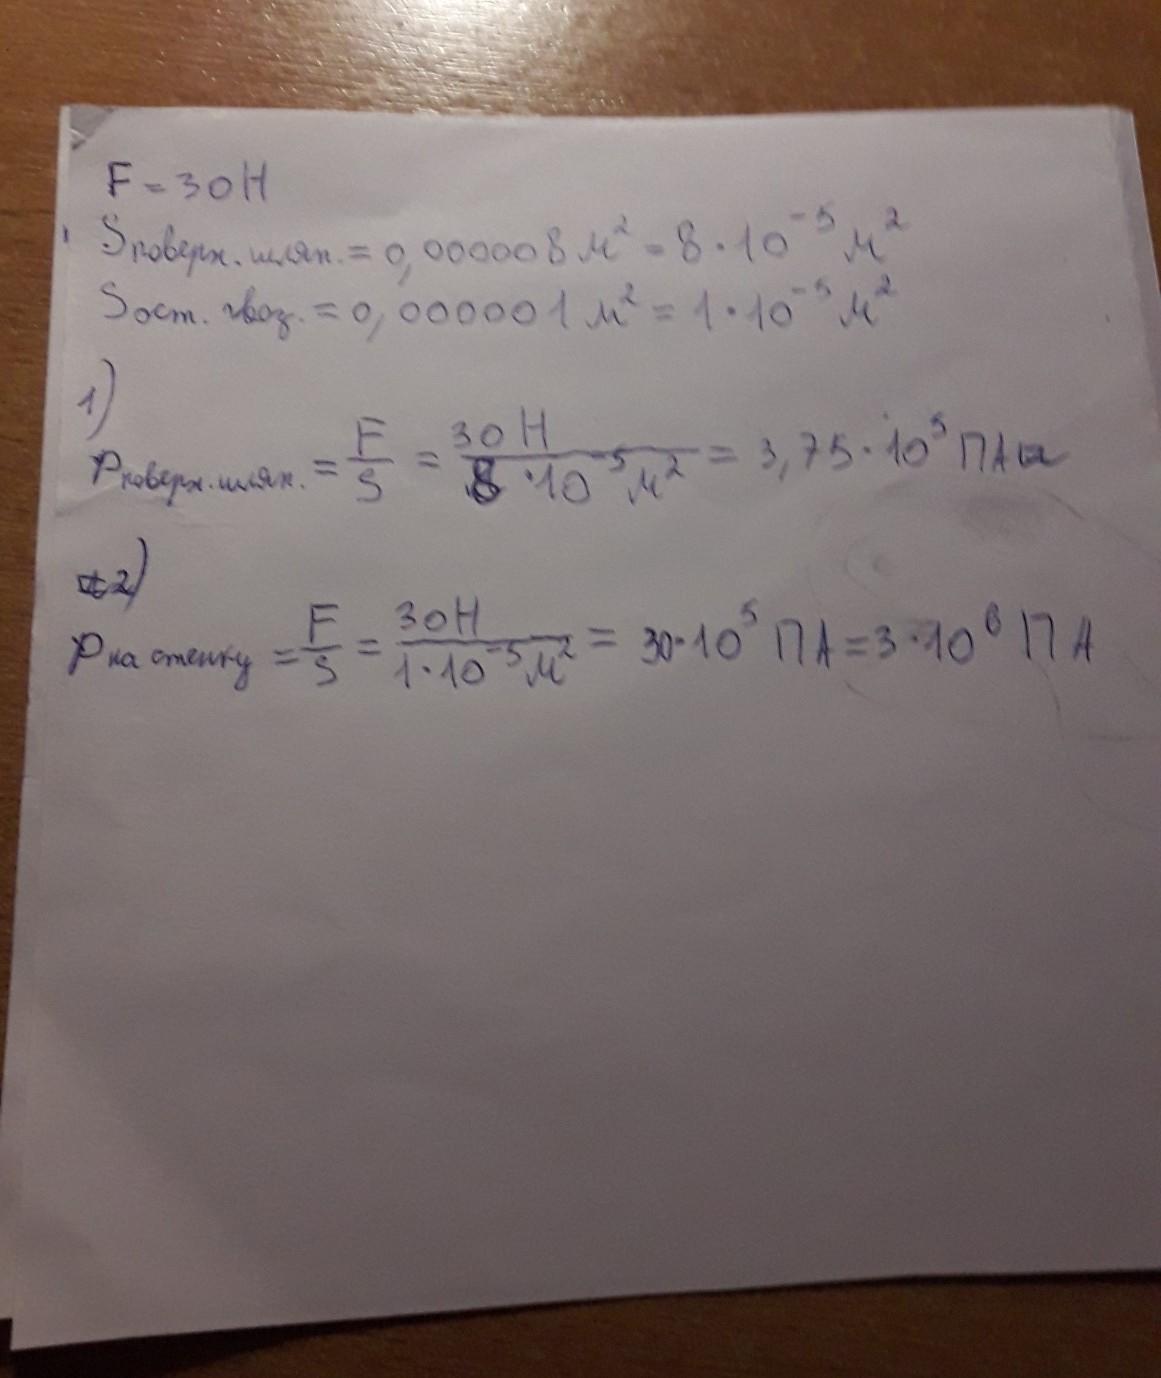 F = 30Н
Sповерх.шляп. = 0,000008 м² = 8 · 10⁻⁵ м²
Sост. гвоз. = 0,000001 м² = 1 · 10⁻⁵ м²
1)
Pповерх.шляп. = F/S = 30Н/8 · 10⁻⁵ м² = 3,75 · 10⁵ ПА
2)
Pна стенку = F/S = 30Н/1 · 10⁻⁵ м² = 30 · 10⁵ ПА = 3 · 10⁶ ПА